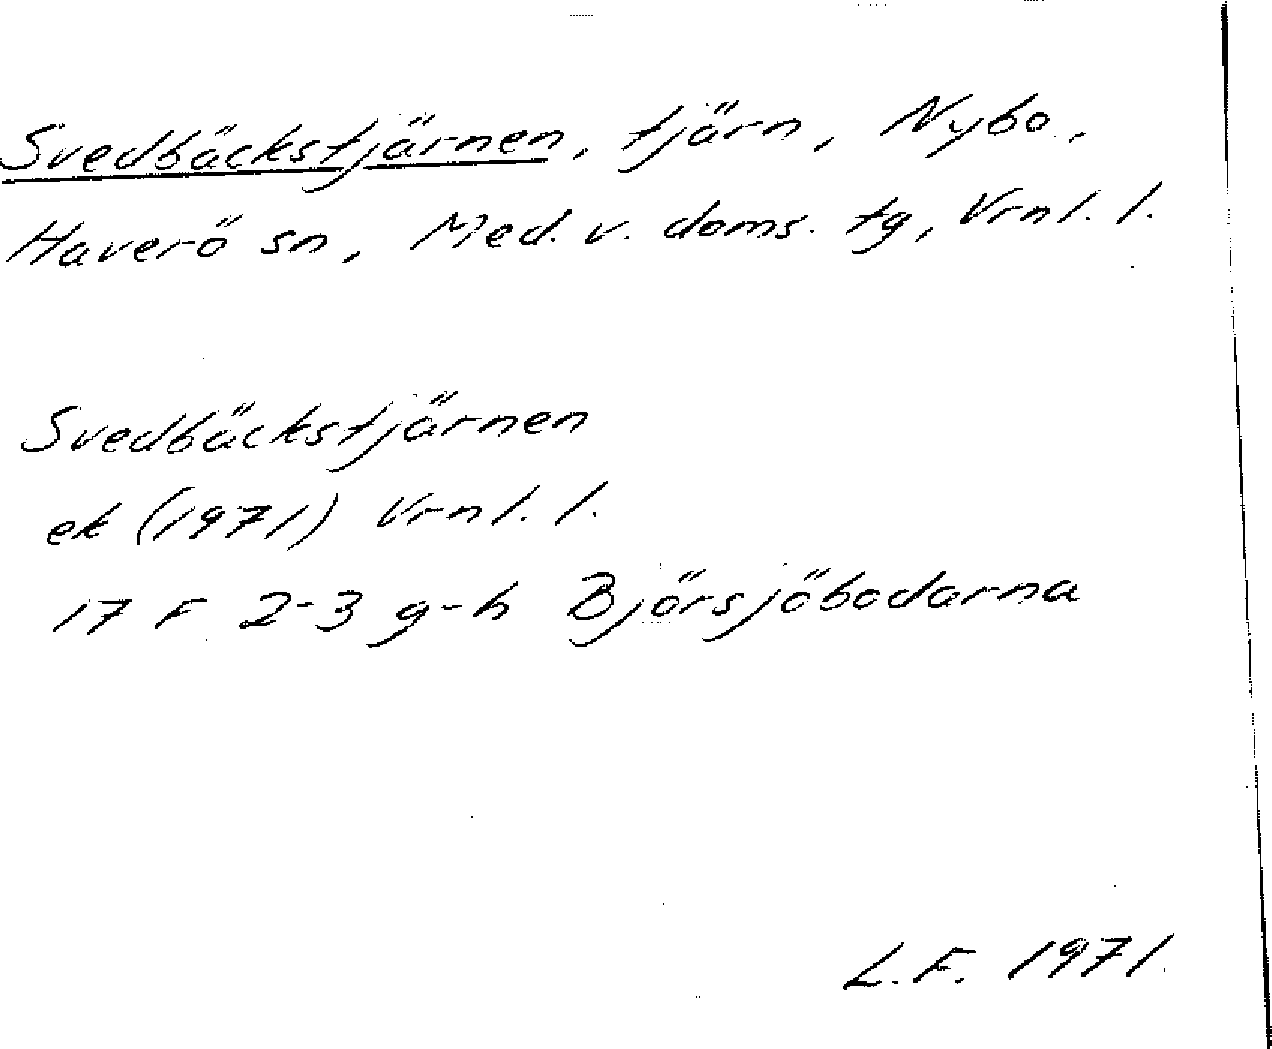 Svedbäckstjärnen, tjärn, Nybo,
Haverö sn, Med. v. doms. tg, Vrnl. l.
Svedbäckstjärnen
ek (1971) Vrnl. l.
17 F 2-3 g-h Björsjöbodarna
L.F. 1971